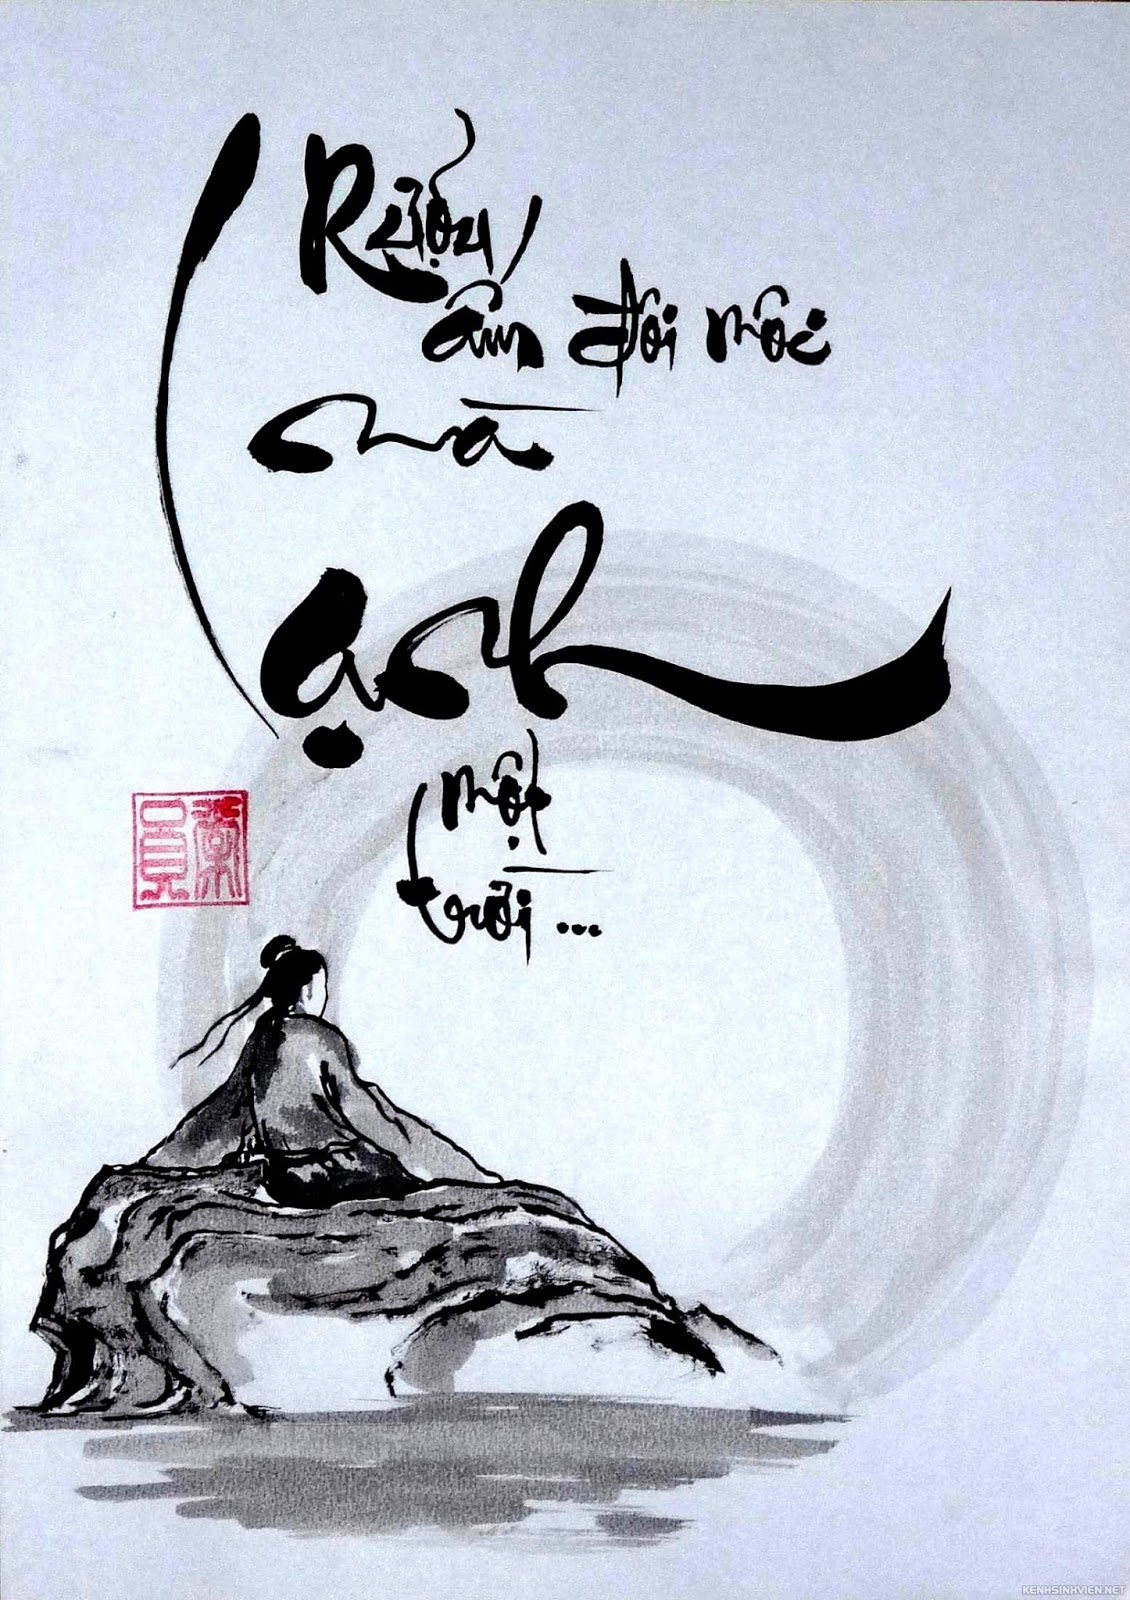 Rượu
ấm đôi môi
mà
lạnh
một
trời ...
KENHSINHVIEN.NET